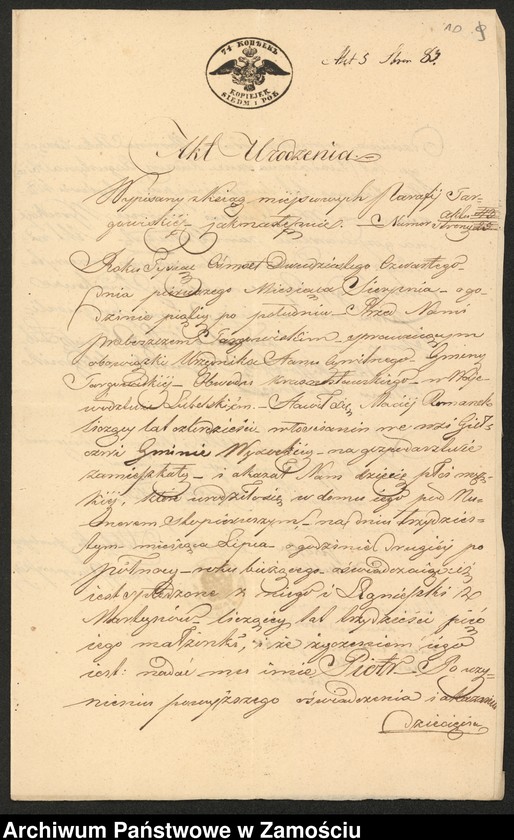 10 9
Akt 5 Stron 83.
74 КОПѢЕКЪ
KOPIEJEK
SIEDM I PÓŁ
Akt Urodzenia
Wypisany z ksiąg miejscowych Parafij Tar-
gowickiej jak następuje. Numer aktu strony
Roku Tysiąc Ośmset Dwudziestego Czwartego
dnia pierwszego Miesiąca Sierpnia o go-
dzinie piątej po południu Przed Nami
proboszczem Targowickim sprawującym
obowiązki Urzędnika Stanu Cywilnego Gminy
Obwodu Krasnostawskiego w Woje-
wództwie Lubelskim Stawił się Maciej Romanek
liczący lat czterdzieści włościanin we wsi Gieł-
czwi Gminie Wysockiej na gospodarstwie
zamieszkały i okazał Nam dziecię płci męz-
kiéj, które urodziło się w domu jego pod Nu-
merem na dniu trzydzies-
tym miesiąca Lipca o godzinie drugiéj po
północy roku bieżącego oświadczając iż
jest spłodzone z niego i Agnieszki z
liczącéj lat trzydzieści pięć
jego małżonki, i że życzeniem jego
jest nadać mu imie Piotr Po uczy-
nieniu powyższego oświadczenia i okazaniu
Dziecięcia
Archiwum Państwowe w Zamościu